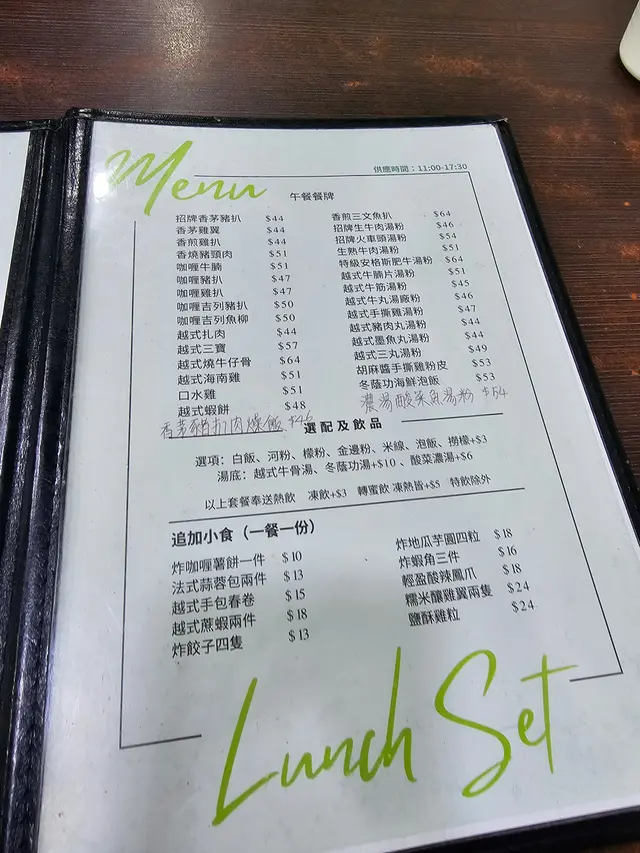 Menu
供應時間：11:00-17:30
午餐餐牌
招牌香茅豬扒 $44
香茅雞翼 $44
香煎雞扒 $44
香燒豬頸肉 $51
咖喱牛腩 $51
咖喱豬扒 $47
咖喱雞扒 $47
咖喱吉列豬扒 $50
咖喱吉列魚柳 $50
越式扎肉 $44
越式三寶 $57
越式燒牛仔骨 $64
越式海南雞 $51
口水雞 $51
越式蝦餅 $48
香茅豬扒肉燥飯 $46
香煎三文魚扒 $64
招牌生牛肉湯粉 $46
招牌火車頭湯粉 $54
生熟牛肉湯粉 $51
特級安格斯肥牛湯粉 $64
越式牛腩片湯粉 $51
越式牛筋湯粉 $45
越式牛丸湯廠粉 $46
越式手撕雞湯粉 $47
越式豬肉丸湯粉 $44
越式墨魚丸湯粉 $44
越式三丸湯粉 $49
胡麻醬手撕雞粉皮 $53
冬蔭功海鮮泡飯 $53
濃湯酸菜魚湯粉 $54
選配及飲品
選項：白飯、河粉、檬粉、金邊粉、米線、泡飯、撈檬+$3
湯底：越式牛骨湯、冬蔭功湯+$10、酸菜濃湯+$6
以上套餐奉送熱飲 凍飲+$3 轉蜜飲 凍熱皆+$5 特飲除外
追加小食（一餐一份）
炸咖喱薯餅一件 $10
法式蒜蓉包兩件 $13
越式手包春卷 $15
越式蔗蝦兩件 $18
炸餃子四隻 $13
炸地瓜芋圓四粒 $18
炸蝦角三件 $16
輕盈酸辣鳳爪 $18
糯米釀雞翼兩隻 $24
鹽酥雞粒 $24
Lunch Set